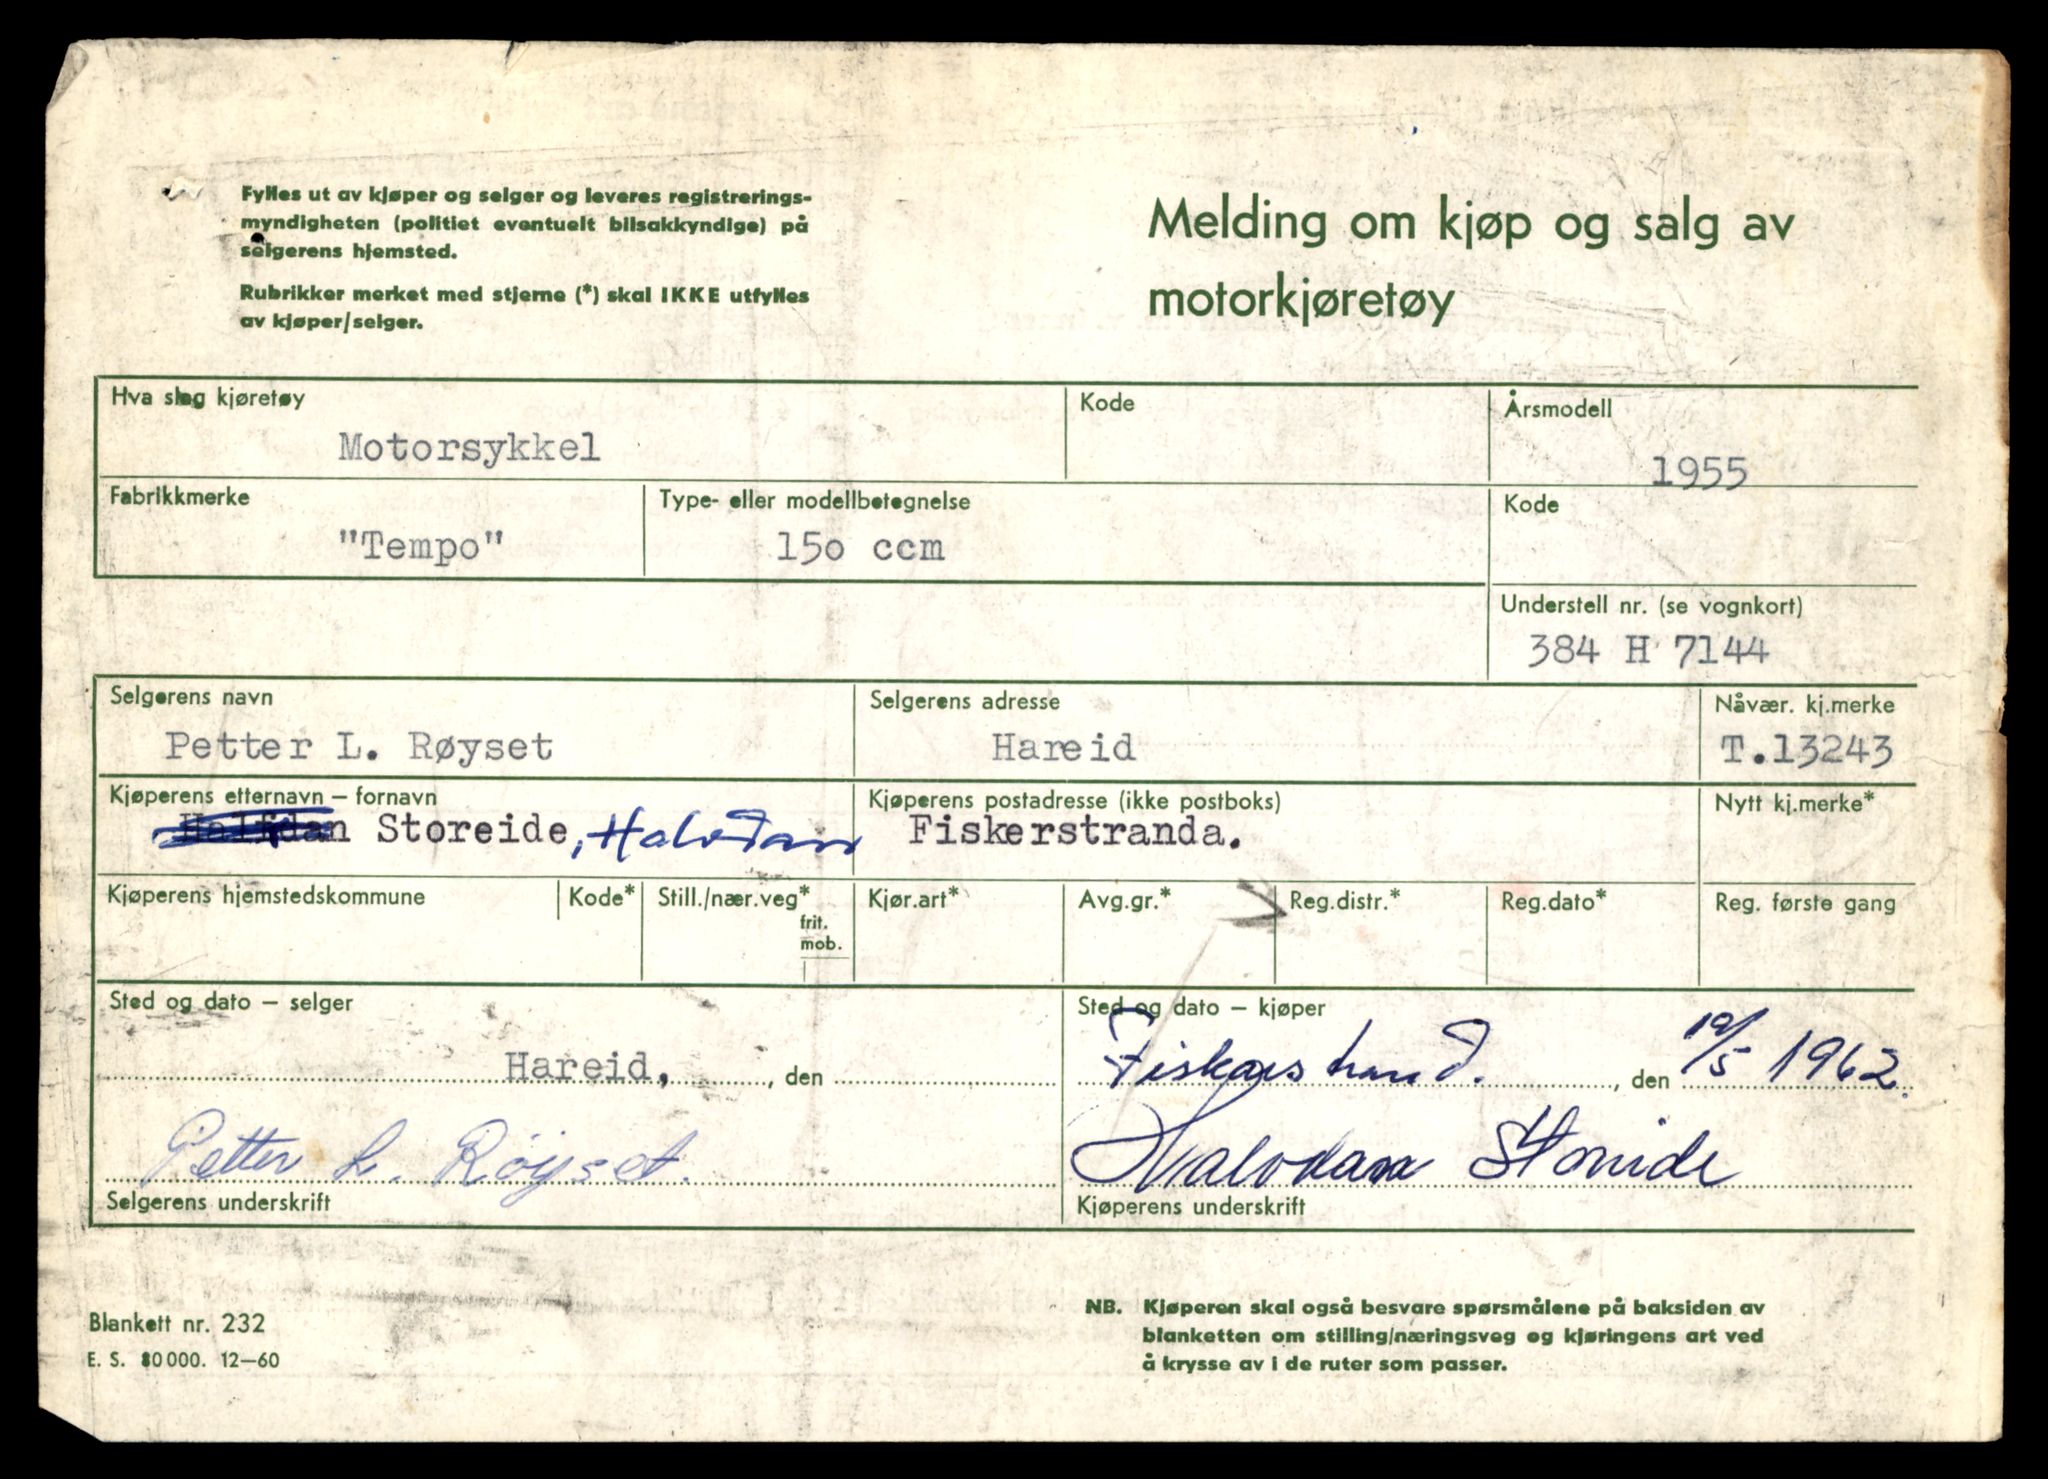 Fylles ut av kjøper og selger og leveres registrerings-
myndigheten (politiet eventuelt bilsakkyndige) på
selgerens hjemsted.
Rubrikker merket med stjerne (*) skal IKKE utfylles
av kjøper/selger.
Melding om kjøp og salg av
motorkjøretøy
Hva slag kjøretøy
Motorsykkel
Kode
Årsmodell
1955
Fabrikkmerke
"Tempo"
Type- eller modellbetegnelse
15o ccm
Kode
Understell nr. (se vognkort)
384 H 7144
Selgerens navn
Petter L. Røyset
Selgerens adresse
Hareid
Nåvær. kj.merke
T.13243
Kjøperens etternavn – fornavn
Storeide, Halvdan
Kjøperens postadresse (ikke postboks)
Fiskerstranda.
Nytt kj.merke*
Kjøperens hjemstedskommune
Kode*
Still./nær.veg*
frit.
mob.
Kjør.art*
Avg.gr.*
Reg.distr.*
Reg.dato*
Reg. første gang
Sted og dato – selger
Hareid, , den
Petter L. Røyset.
Selgerens underskrift
Sted og dato – kjøper
Fiskarstrand. , den 19/5 1962.
Halvdan Storeide
Kjøperens underskrift
Blankett nr. 232
E. S. 80 000. 12–60
NB. Kjøperen skal også besvare spørsmålene på baksiden av
blanketten om stilling/næringsveg og kjøringens art ved
å krysse av i de ruter som passer.